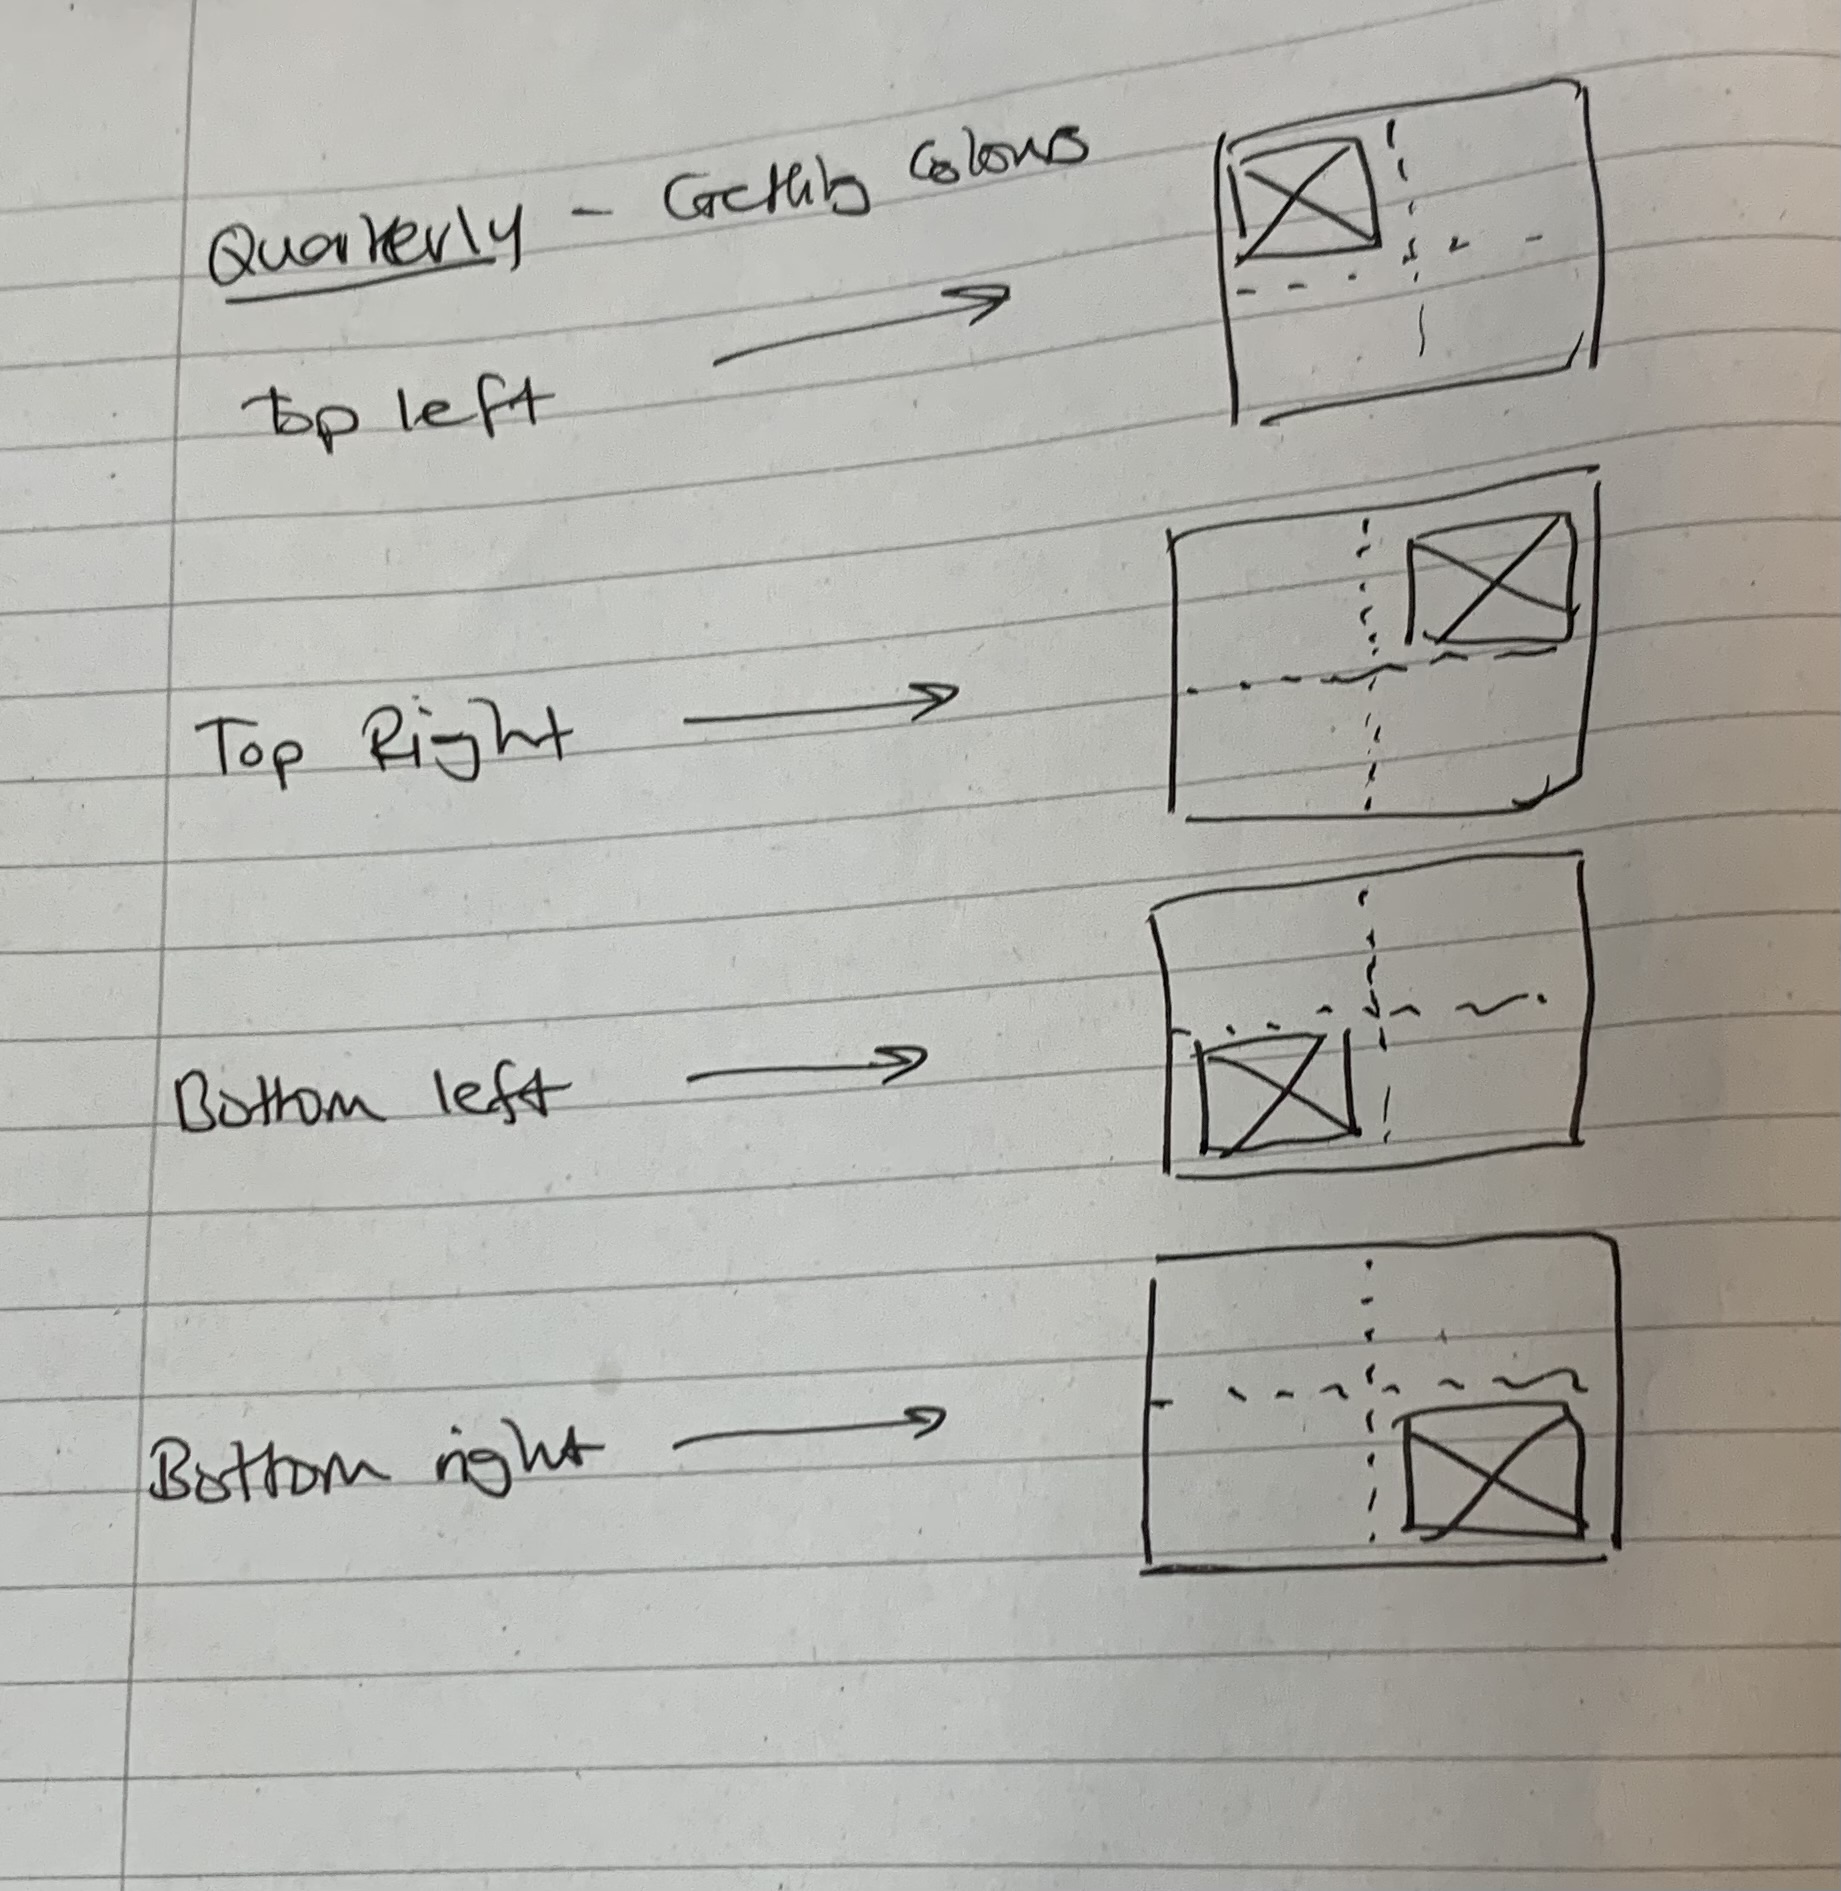 Quarterly - Getting Colours
Top left
Top Right
Bottom left
Bottom right